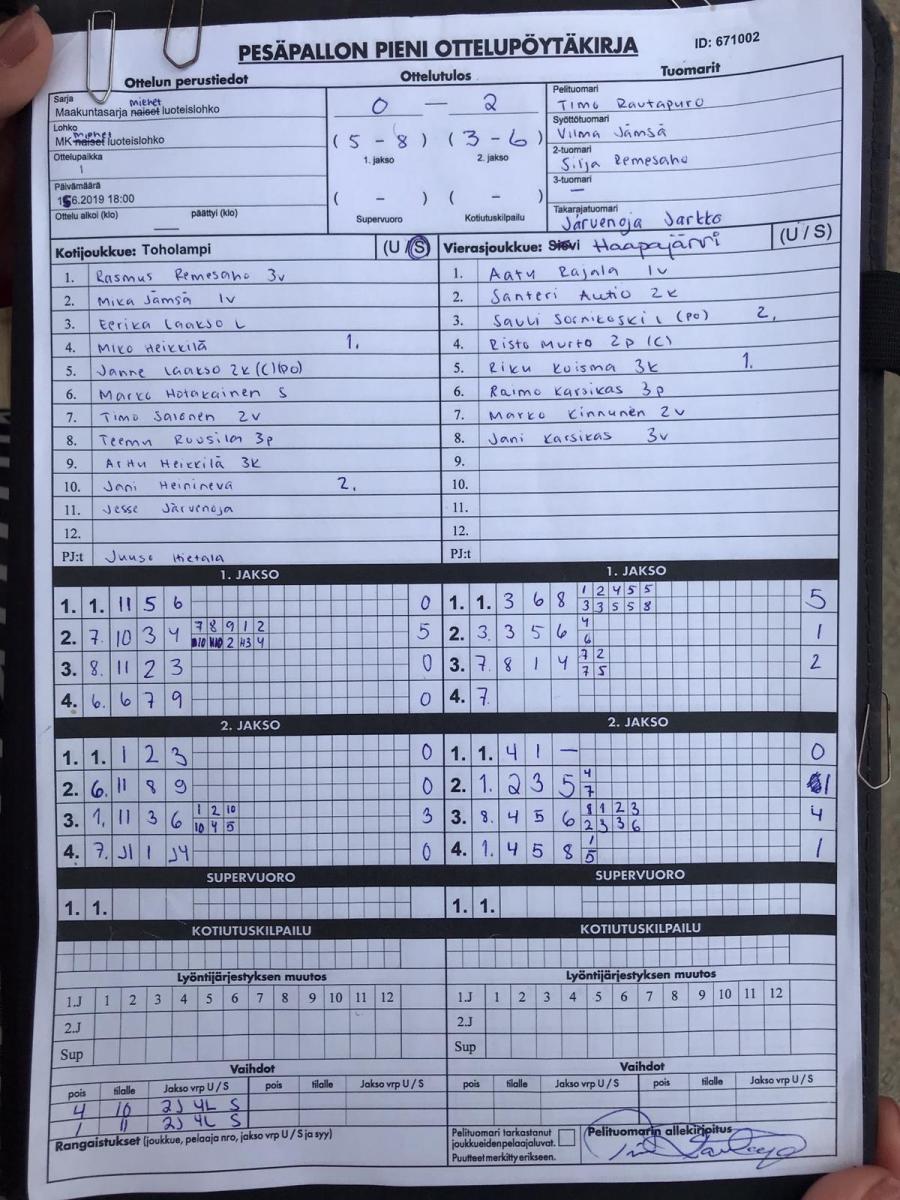 PESÄPALLON PIENI OTTELUPÖYTÄKIRJA ID: 671002
Ottelun perustiedot Ottelutulos Tuomarit
Sarja miehet
Maakuntasarja naiset luoteislohko
Lohko miehet
MK naiset luoteislohko
Ottelupaikka
1
Päivämäärä
15.6.2019 18:00
Ottelu alkoi (klo) päättyi (klo)
0 — 2
( 5 - 8 ) ( 3 - 6 )
1. jakso 2. jakso
( - ) ( - )
Supervuoro Kotiutuskilpailu
Pelituomari
Timo Rautapuro
Syöttötuomari
Vilma Jämsä
2-tuomari
Silja Remesaho
3-tuomari
—
Takarajatuomari
Järvenoja Jarkko
Kotijoukkue: Toholampi (U / S)
1. Rasmus Remesaho 3v
2. Mika Jämsä 1v
3. Eerika Laakso L
4. Miko Heikkilä 1.
5. Janne Laakso 2k (C)(po)
6. Marko Hotakainen S
7. Timo Salonen 2v
8. Teemu Ruusila 3p
9. Arttu Heikkilä 3k
10. Jani Heinineva 2.
11. Jesse Järvenoja
12.
PJ:t Juuso Hietala
Vierasjoukkue: Sievi Haapajärvi (U / S)
1. Aatu Rajala 1v
2. Santeri Autio 2k
3. Sauli Sornikoski L (po) 2.
4. Risto Murto 2p (C)
5. Riku Kuisma 3k 1.
6. Raimo Karsikas 3p
7. Marko Kinnunen 2v
8. Jani Karsikas 3v
9.
10.
11.
12.
PJ:t
1. JAKSO
1. 1. 11 5 6 0
7 8 9 1 2
2. 7. 10 3 4 5
3. 8. 11 2 3 0
4. 6. 6 7 9 0
2. JAKSO
1. 1. 1 2 3 0
2. 6. 11 8 9 0
1 2 10
3. 1. 11 3 6 10 4 5 3
4. 7. 11 1 0
SUPERVUORO
1. 1.
KOTIUTUSKILPAILU
Lyöntijärjestyksen muutos
1.J 1 2 3 4 5 6 7 8 9 10 11 12
2.J
Sup
Vaihdot
pois tilalle Jakso vrp U / S pois tilalle Jakso vrp U / S
4 10 2J 4L S
1 11 2J 4L S
Rangaistukset (joukkue, pelaaja nro, jakso vrp U / S ja syy)
1. JAKSO
1 2 4 5 5
1. 1. 3 6 8 3 3 5 5 8 5
4
2. 3. 3 5 6 6 1
7 2
3. 7. 8 1 4 7 5 2
4. 7.
2. JAKSO
1. 1. 4 1 — 0
4
2. 1. 2 3 5 7 1
8 1 2 3
3. 8. 4 5 6 2 3 3 6 4
1
4. 1. 4 5 8 5 1
SUPERVUORO
1. 1.
KOTIUTUSKILPAILU
Lyöntijärjestyksen muutos
1.J 1 2 3 4 5 6 7 8 9 10 11 12
2.J
Sup
Vaihdot
pois tilalle Jakso vrp U / S pois tilalle Jakso vrp U / S
Pelituomari tarkastanut
joukkueidenpelaajaluvat.
Puutteet merkitty erikseen.
Pelituomarin allekirjoitus